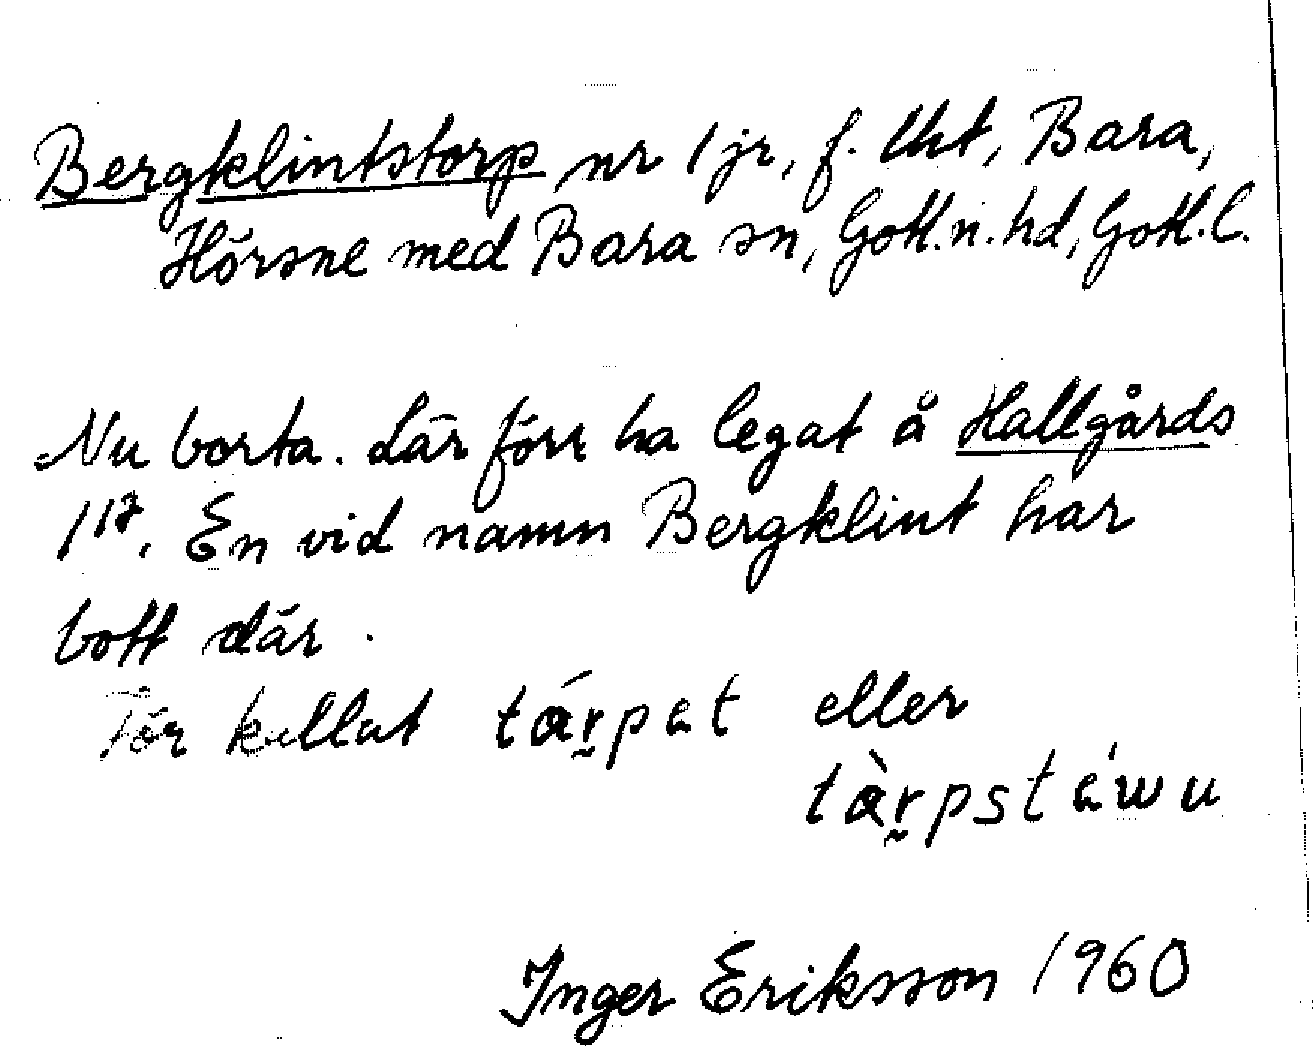 Bergklintstorp nr 1 jr, f. lht, Bara,
Hörsne med Bara sn, Gotl. n. hd, Gotl. l.
Nu borta. Lär förr ha legat å Hallgårds
1¹⁷. En vid namn Bergklint har
bott där.
Förr kallat tárpet eller
tàrpstéwu
Inger Eriksson 1960